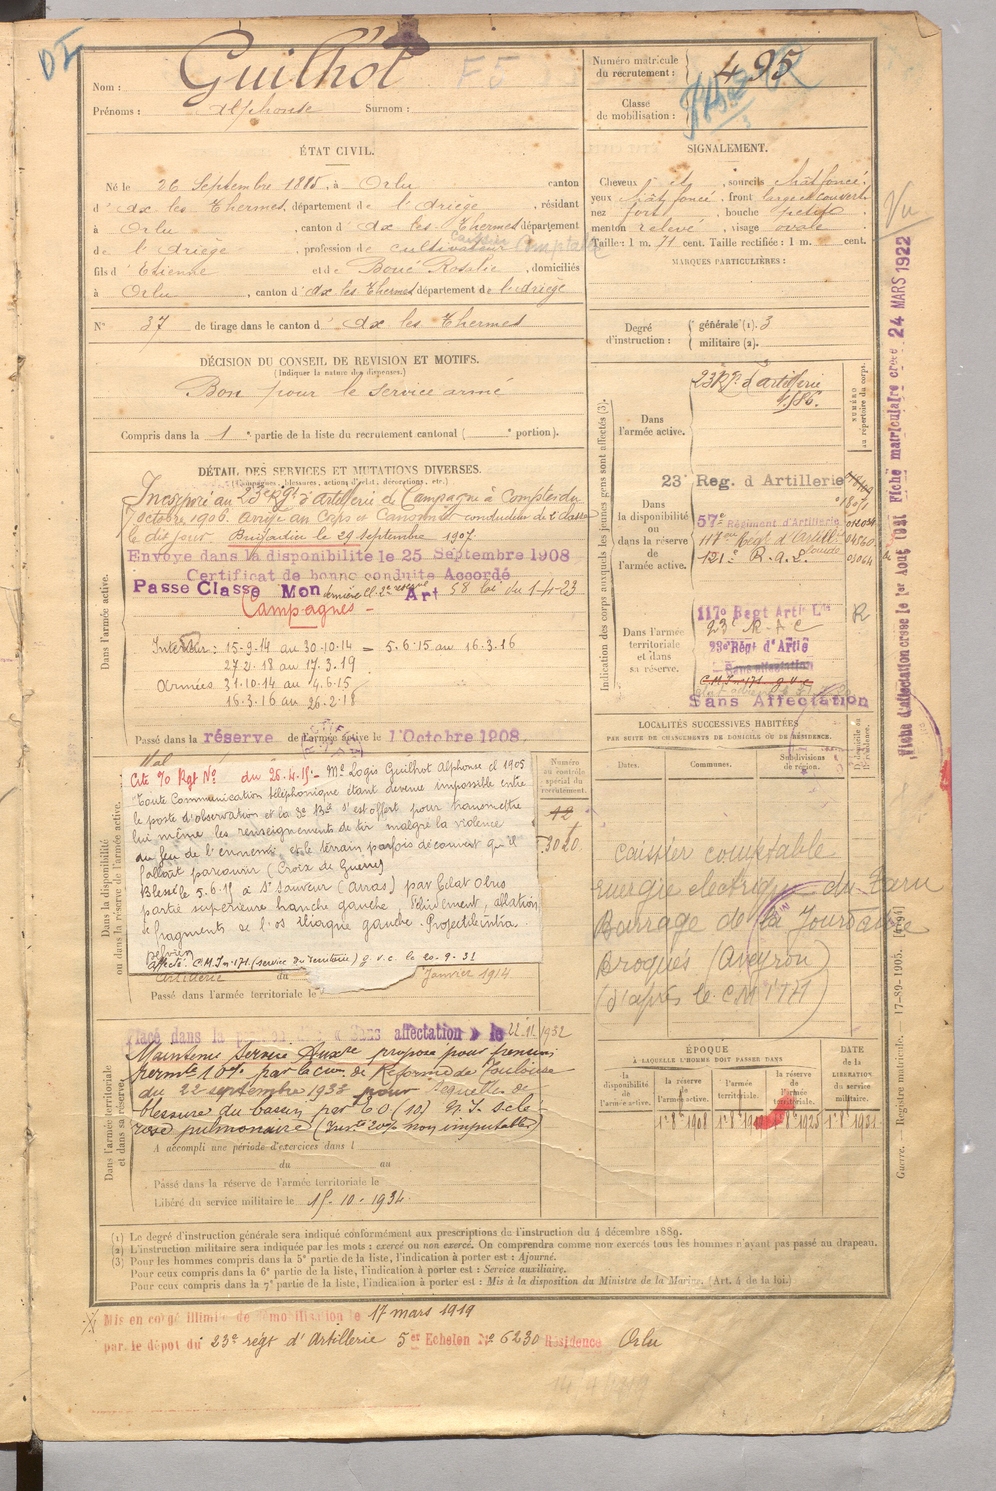 DI
Nom : Guilhot
Prénoms : Alphonse Surnom :
Numéro matricule du recrutement : 495
Classe de mobilisation :
ÉTAT CIVIL.
Né le 26 Septembre 1885, à Orlu canton
d' Ax les Thermes, département de l'Ariège, résidant
à Orlu, canton d' Ax les Thermes département
de l'Ariège, profession de cultivateur Caissier Comptable
fils d' Etienne et de Boué Rosalie, domiciliés
à Orlu, canton d' Ax les Thermes département de l'ariège
N° 37 de tirage dans le canton d' Ax les Thermes
DÉCISION DU CONSEIL DE REVISION ET MOTIFS.
(Indiquer la nature des dispenses.)
Bon pour le service armé
Compris dans la 1e partie de la liste du recrutement cantonal ( e portion).
SIGNALEMENT.
Cheveux et, sourcils chât foncé.
yeux chât foncé, front large et couvert
nez fort, bouche petite
menton relevé, visage ovale
Taille : 1 m. 71 cent. Taille rectifiée : 1 m. cent.
MARQUES PARTICULIÈRES :
Degré d'instruction : générale (1). 3
militaire (2).
Vu
Fiche d'affectation créée le 1er Août 1931 Fiche matriculaire créée 24 MARS 1922
DÉTAIL DES SERVICES ET MUTATIONS DIVERSES.
(Campagnes, blessures, actions d'éclat, décorations, etc.)
Dans l'armée active.
Incorporé au 23e Rgt d'Artillerie de Campagne à Compter du
7 octobre 1906. Arrivé au Corps et Canonnier conducteur de 2e classe
le dit jour. Brigadier le 29 septembre 1907.
Envoyé dans la disponibilité le 25 Septembre 1908
Certificat de bonne conduite Accordé
Passe Classe Mon dernière cl. 2e réserve Art 58 loi du 1-4-23
Campagnes -
Intérieur : 15-9-14 au 30-10-14 = 5.6.15 au 16.3.16
27.2.18 au 17.3.19
Armées 31.10.14 au 4.6.15
16.3.16 au 26.2.18
Passé dans la réserve de l'armée active le 1 Octobre 1908.
Indication des corps auxquels les jeunes gens sont affectés (3).
NUMÉRO au répertoire du corps.
Dans l'armée active.
23e Rgt d'artillerie
Dans la disponibilité ou dans la réserve de l'armée active.
23e Reg. d Artillerie
57e Régiment d'Artillerie
117me Régt d'Artill lourde
121e R.a.L.
Dans l'armée territoriale et dans sa réserve.
117e Regt Artie Lde R
23e R A C
23e Régt d'Artie
Sans affectation
C.M. In 171 g.v.c.
Sans Affectation
LOCALITÉS SUCCESSIVES HABITÉES
PAR SUITE DE CHANGEMENTS DE DOMICILE OU DE RÉSIDENCE.
Dates. Communes. Subdivisions de région. D. domicile ou R. résidence.
Caissier comptable
Energie electrique du Tarn
Barrage de la Jourdanie
Broquiès (Aveyron)
(d'après le CM 171)
Dans la disponibilité ou dans la réserve de l'armée active.
Cité %. Rgt N° du 26.4.15 - Mal Logis Guilhot Alphonse cl 1905
Toute Communication téléphonique étant devenue impossible entre
le poste d'observation et la 3e Bie s'est offert pour transmettre
lui même les renseignements de tir malgré la violence
du feu de l'ennemi et le terrain parfois découvert qu'il
fallait parcourir (Croix de Guerre)
Blessé le 5.6.15 à St Sauveur (Arras) par Eclat Obus
partie supérieure hanche gauche, ablation
de fragments de l'os iliaque gauche. Projectile intra
pelvien
affecté C.M. In 171 (service du territoire) g.v.c. le 20-9-31
Artillerie du Janvier 1914
Passé dans l'armée territoriale le
Numéro au contrôle spécial du recrutement.
12
3020
Dans l'armée territoriale et dans sa réserve.
Placé dans la position dite « Sans affectation » le 22.11.1932
Maintenu Service Auxre proposé pour pension
permte 10% par la cion de Réforme de Toulouse
du 22 septembre 1933 pour Séquelles de
blessure du bassin par EO (10) N.I. sclé-
rose pulmonaire (Invté 20% non imputable)
A accompli une période d'exercices dans l
du au
Passé dans la réserve de l'armée territoriale le
Libéré du service militaire le 15-10-1934
ÉPOQUE
À LAQUELLE L'HOMME DOIT PASSER DANS
DATE DE LA LIBÉRATION du service militaire.
la disponibilité de l'armée active. la réserve de l'armée active. l'armée territoriale. la réserve de l'armée territoriale.
1er 8e 1908 1er 8e 19 1er 8e 1925 1er 8e 1931
Guerre. — Registre matricule. — 17-89-1905. [6194]
(1) Le degré d'instruction générale sera indiqué conformément aux prescriptions de l'instruction du 4 décembre 1889.
(2) L'instruction militaire sera indiquée par les mots : exercé ou non exercé. On comprendra comme non exercés tous les hommes n'ayant pas passé au drapeau.
(3) Pour les hommes compris dans la 5e partie de la liste, l'indication à porter est : Ajourné.
Pour ceux compris dans la 6e partie de la liste, l'indication à porter est : Service auxiliaire.
Pour ceux compris dans la 7e partie de la liste, l'indication à porter est : Mis à la disposition du Ministre de la Marine. (Art. 4 de la loi.)
Mis en congé illimité de démobilisation le 17 mars 1919
par le dépôt du 23e régt d'Artillerie 5er Echelon N° 6230 Résidence Orlu